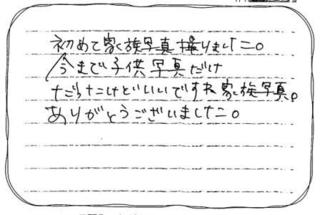 初めて家族写真撮りました。
今まで子供写真だけ
だったけどいいですね家族写真。
ありがとうございました。